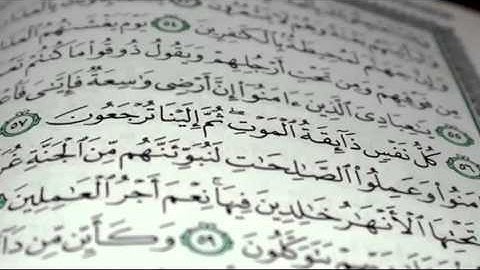 وَإِنَّ جَهَنَّمَ لَمُحِيطَةٌ بِٱلْكَٰفِرِينَ ٥٤ يَوْمَ يَغْشَىٰهُمُ
مِن فَوْقِهِمْ وَمِن تَحْتِ أَرْجُلِهِمْ وَيَقُولُ ذُوقُوا۟ مَا كُنتُمْ
٥٥ يَٰعِبَادِىَ ٱلَّذِينَ ءَامَنُوٓا۟ إِنَّ أَرْضِى وَٰسِعَةٌ فَإِيَّٰىَ
٥٦ كُلُّ نَفْسٍ ذَآئِقَةُ ٱلْمَوْتِ ثُمَّ إِلَيْنَا تُرْجَعُونَ ٥٧
ءَامَنُوا۟ وَعَمِلُوا۟ ٱلصَّٰلِحَٰتِ لَنُبَوِّئَنَّهُم مِّنَ ٱلْجَنَّةِ
تَحْتِهَا ٱلْأَنْهَٰرُ خَٰلِدِينَ فِيهَا نِعْمَ أَجْرُ ٱلْعَٰمِلِينَ
رَبِّهِمْ يَتَوَكَّلُونَ ٥٩ وَكَأَيِّن مِّن